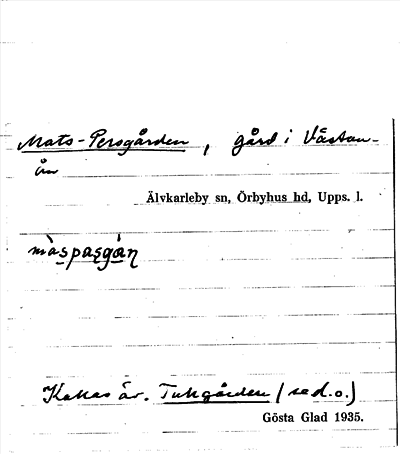 Mats-Persgården, gård i Västan-
ån
Älvkarleby sn, Örbyhus hd, Upps. l.
màspasgán
Kallas äv. Tukgården (se d.o.)
Gösta Glad 1935.